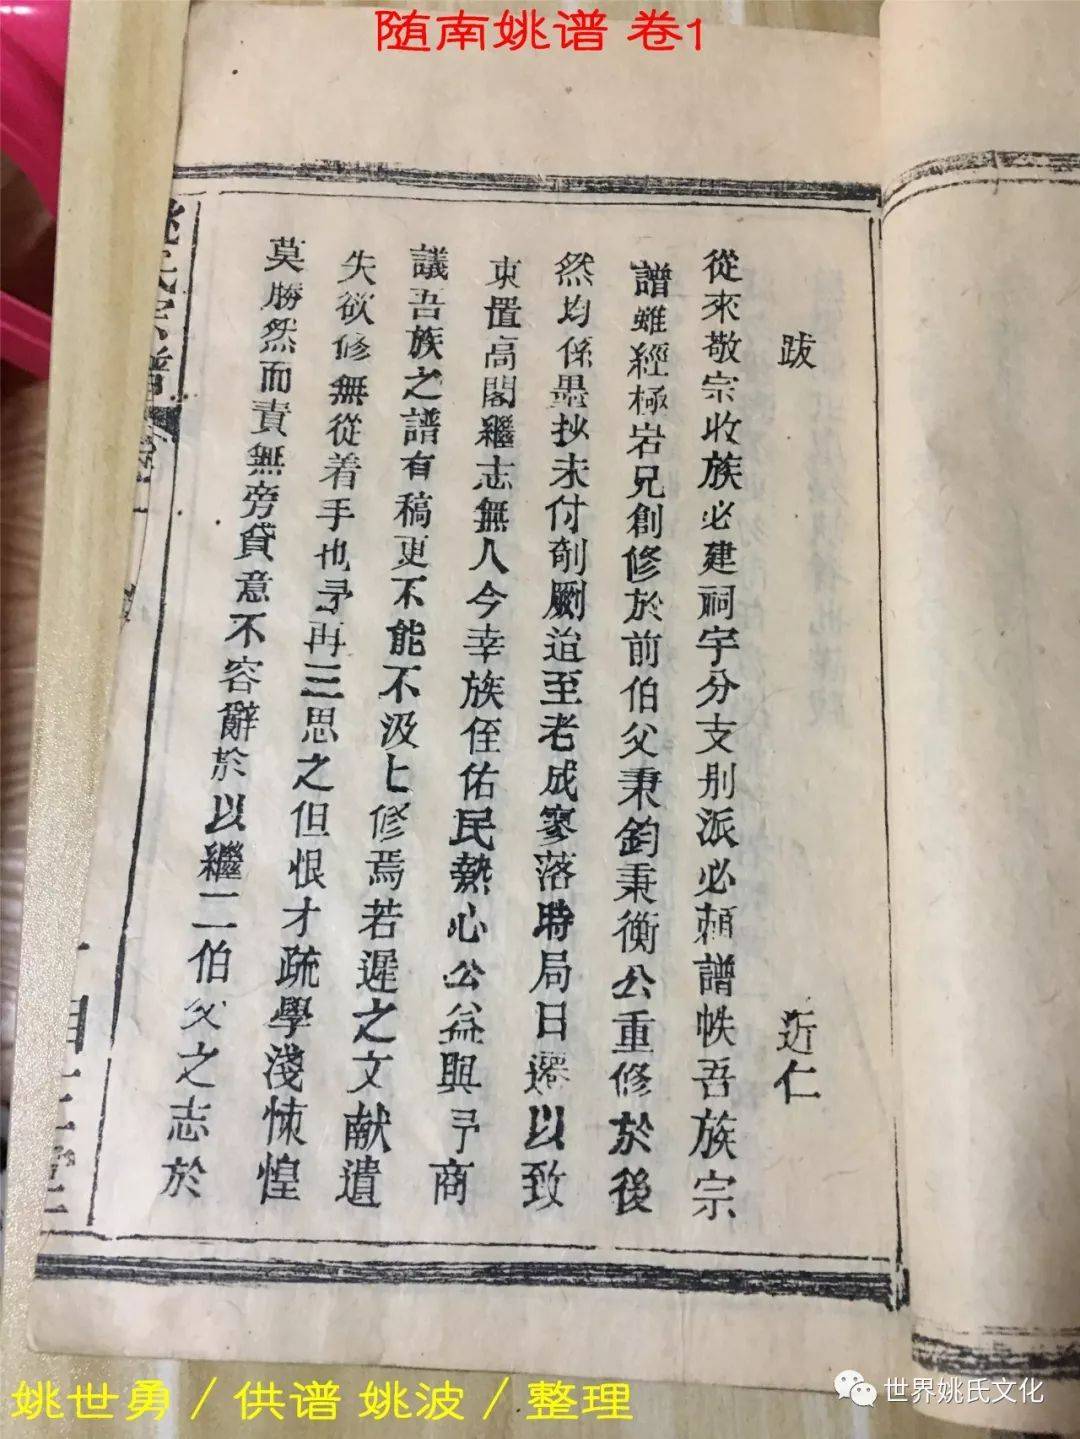 随南姚谱 卷1
跋
近仁
從來敬宗收族必建祠宇分支别派必賴譜帙吾族宗
譜雖經極岩兄創修於前伯父秉鈞秉衡公重修於後
然均係墨抄未付剞劂迨至老成寥落時局日遷以致
束置高閣繼志無人今幸族侄佑民熱心公益與予商
議吾族之譜有稿更不能不汲匕修焉若遲之文献遺
失欲修無從着手也予再三思之但恨才疏學淺悚惶
莫勝然而責無旁貸意不容辭於以繼二伯父之志於
姚氏宗譜
姚世勇／供谱 姚波／整理
世界姚氏文化